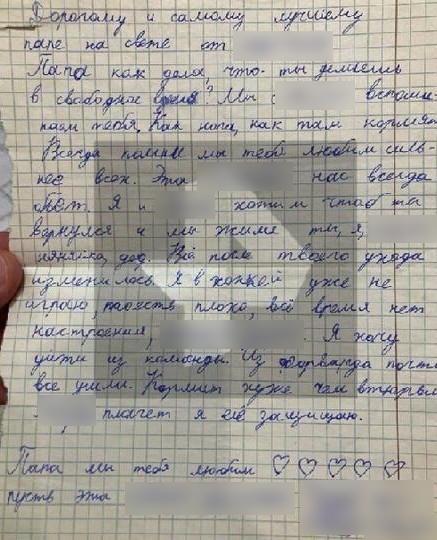 Дорогому и самому лучшему
папе на свете от
Папа как дела, что ты делаешь
в свободное время? Мы с вспоми-
наем тебя. Как нога, как там кормят
Всегда помни мы тебя любим силь-
нее всех. Эта нас всегда
Я и хотим чтоб ты
вернулся и мы жили ты, я,
нянечка, дед. Всё после твоего ухода
изменилось. Я в хоккей уже не
играю, плохо, всё время нет
настроения, Я хочу
уйти из команды. Из форварда почти
все ушли. Кормит хуже чем в
плачет я её защищаю.
Папа мы тебя любим ♡ ♡ ♡ ♡ ♡
пусть эта